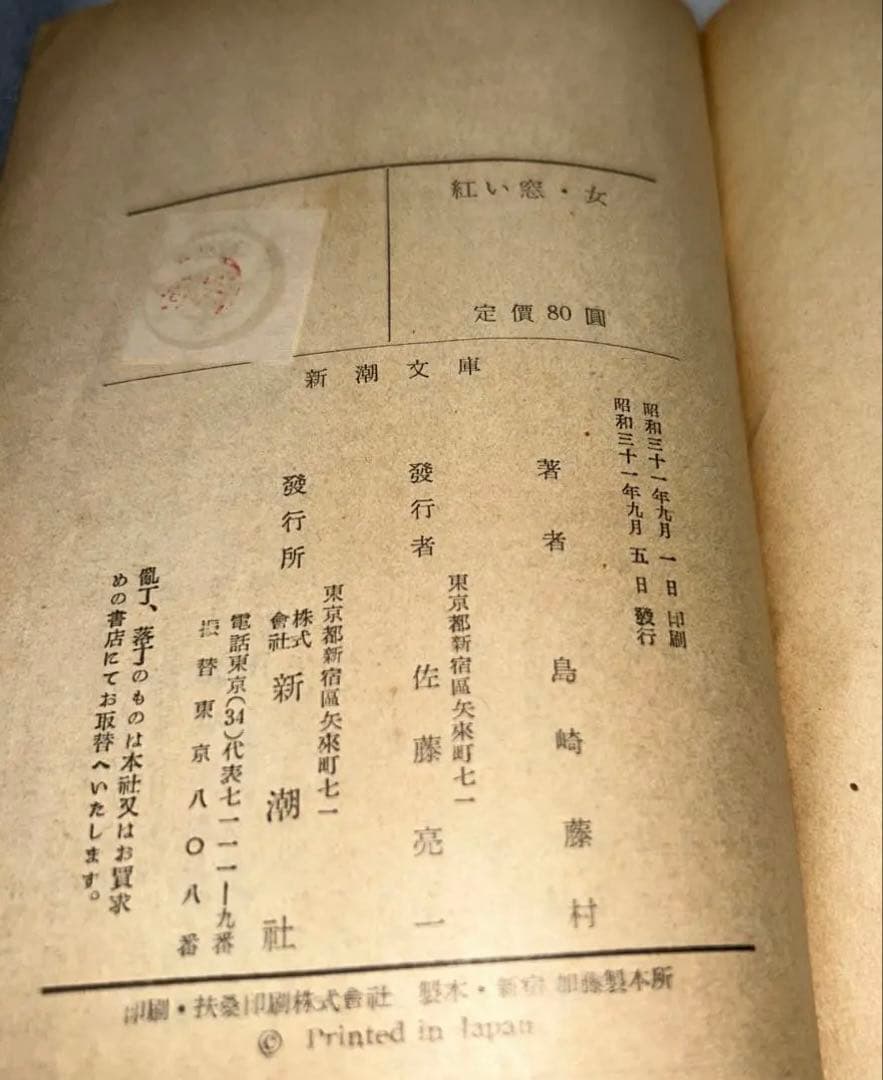 紅い窓・女
定價80圓
新潮文庫
昭和三十一年九月一日印刷
昭和三十一年九月五日發行
著者 島崎藤村
東京都新宿區矢來町七一
發行者 佐藤亮一
東京都新宿區矢來町七一
發行所 株式會社 新潮社
電話東京(34)代表七一一一―九番
振替東京八〇八番
亂丁、落丁のものは本社又はお買求
めの書店にてお取替へいたします。
印刷・扶桑印刷株式會社 製本・新宿 加藤製本所
© Printed in Japan